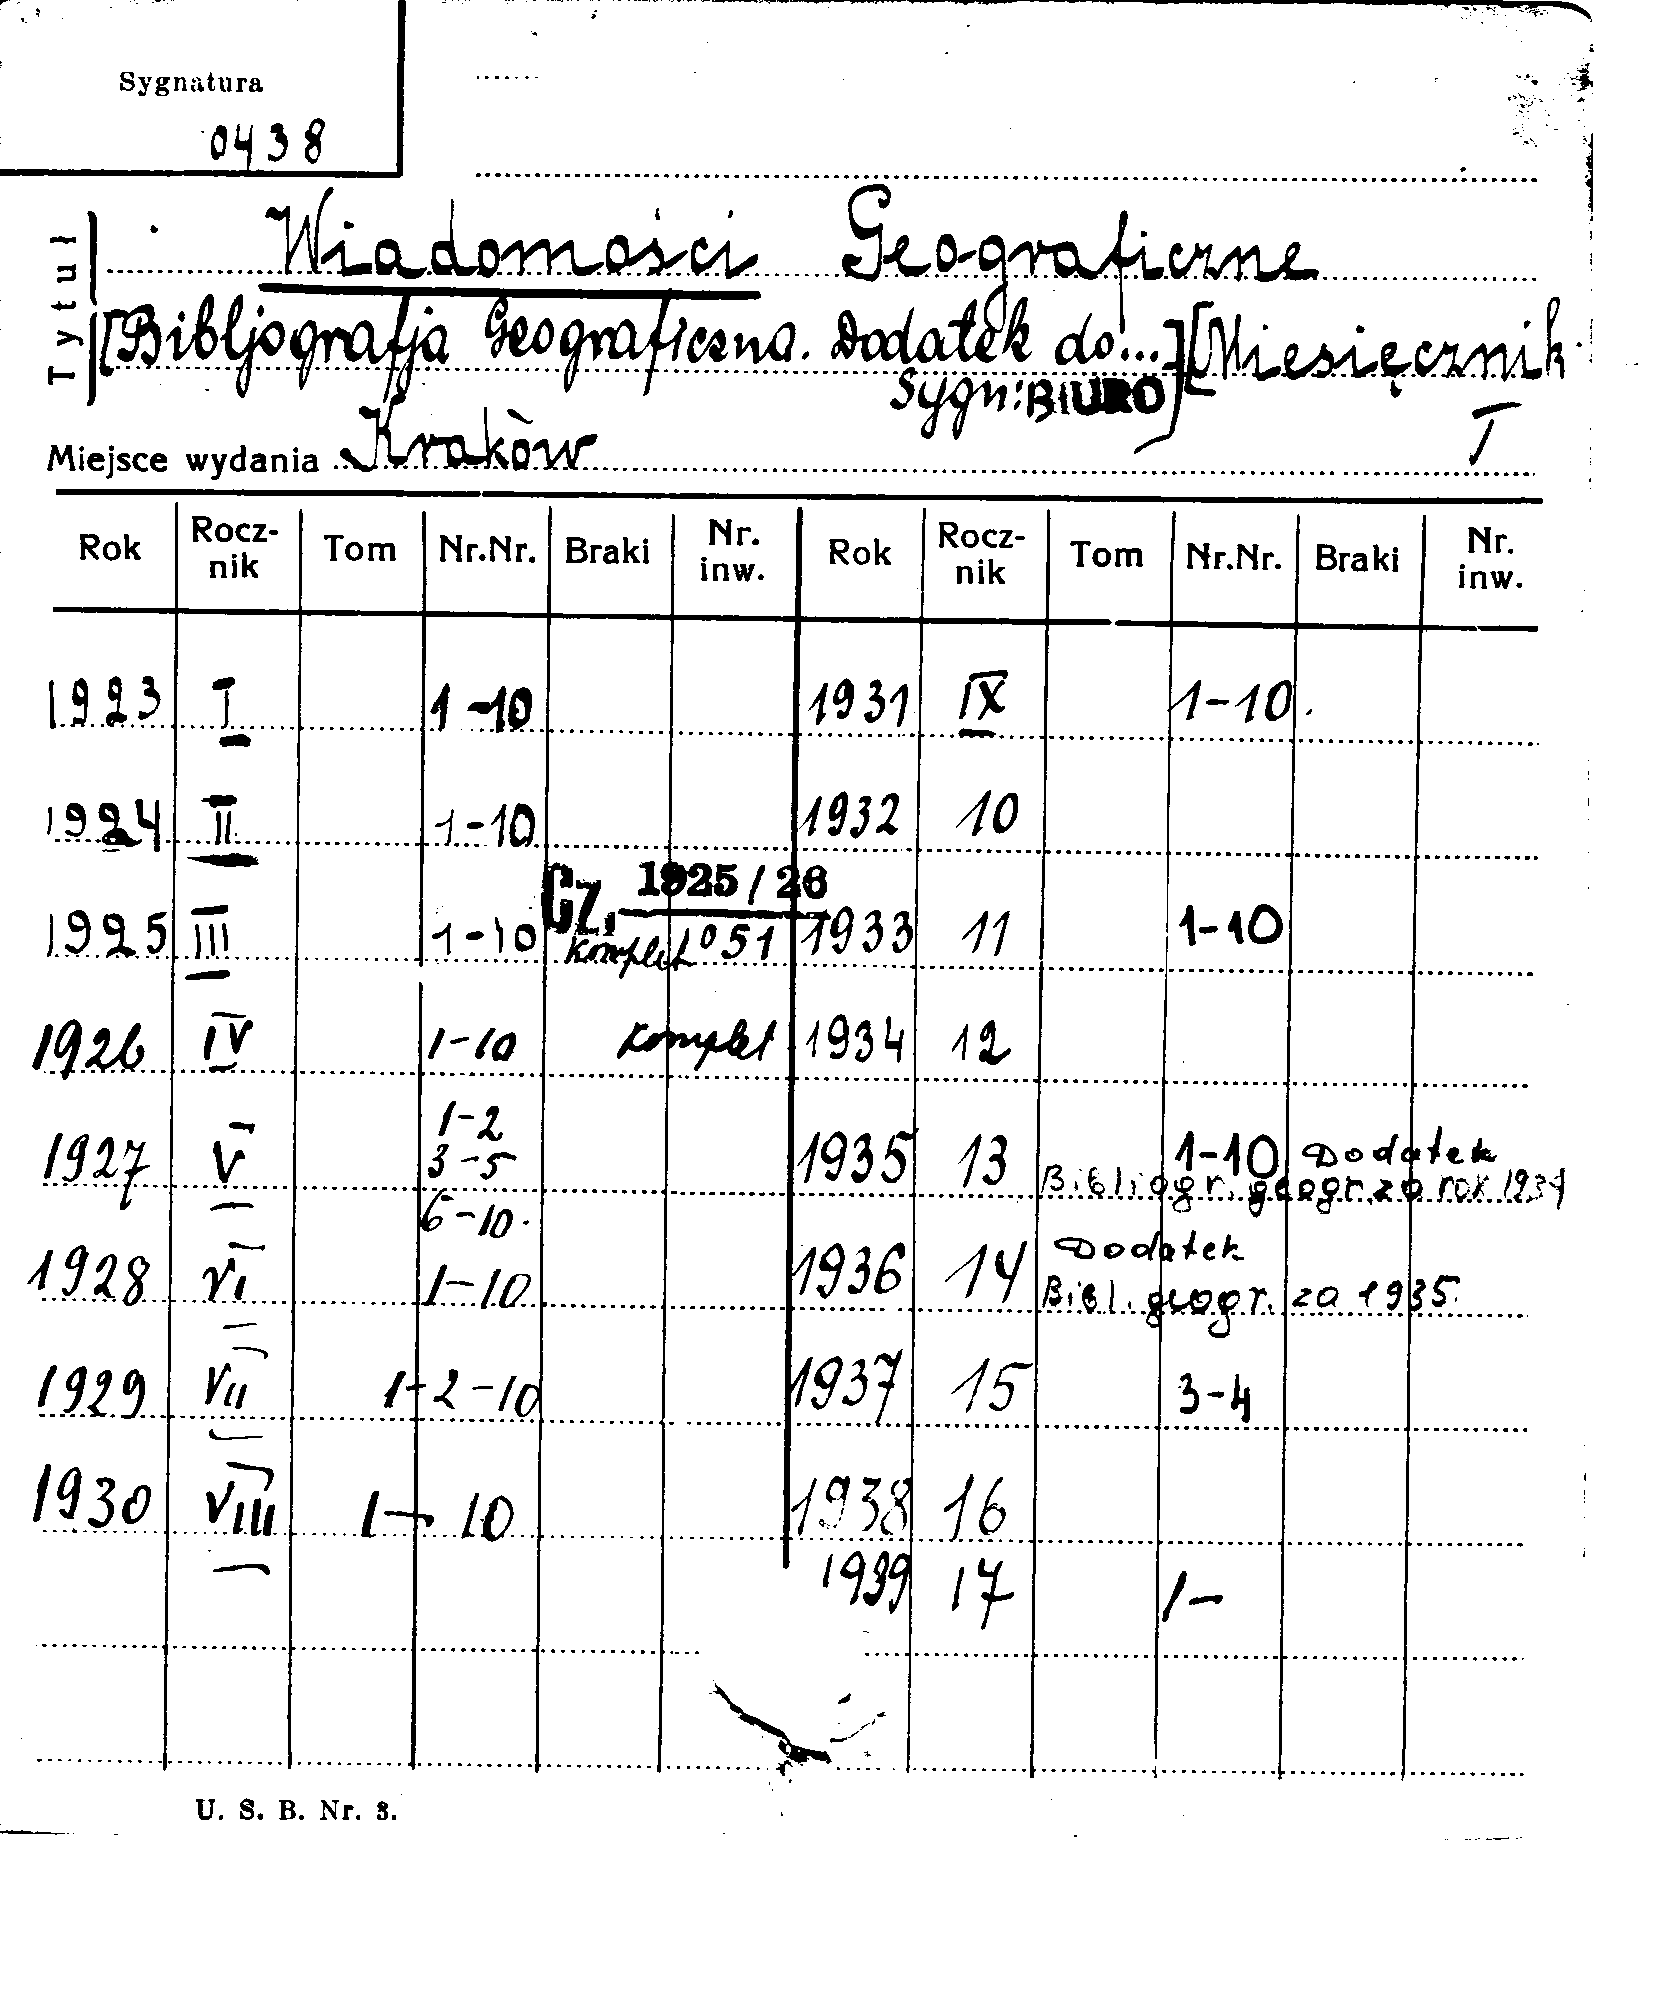 Sygnatura
0438
Tytuł
Wiadomości Geograficzne
[Bibljografja Geograficzna. Dodatek do...] [Miesięcznik
Sygn: BIURO
Miejsce wydania Kraków I
Rok Rocz-nik Tom Nr.Nr. Braki Nr. inw. Rok Rocz-nik Tom Nr.Nr. Braki Nr. inw.
1923 I 1-10 1931 IX 1-10.
1924 II 1-10 1932 10
1925 III 1-10 Cz. 1925/26 051 komplet 1933 11 1-10
1926 IV 1-10 komplet 1934 12
1927 V 1-2 3-5 6-10. 1935 13 1-10 Dodatek
Bibliogr. geogr. za rok 1934
1928 VI 1-10 1936 14 Dodatek
Bibl. geogr. za 1935
1929 VII 1-2-10 1937 15 3-4
1930 VIII 1- 10 1938 16
1939 17 1-
U. S. B. Nr. 3.